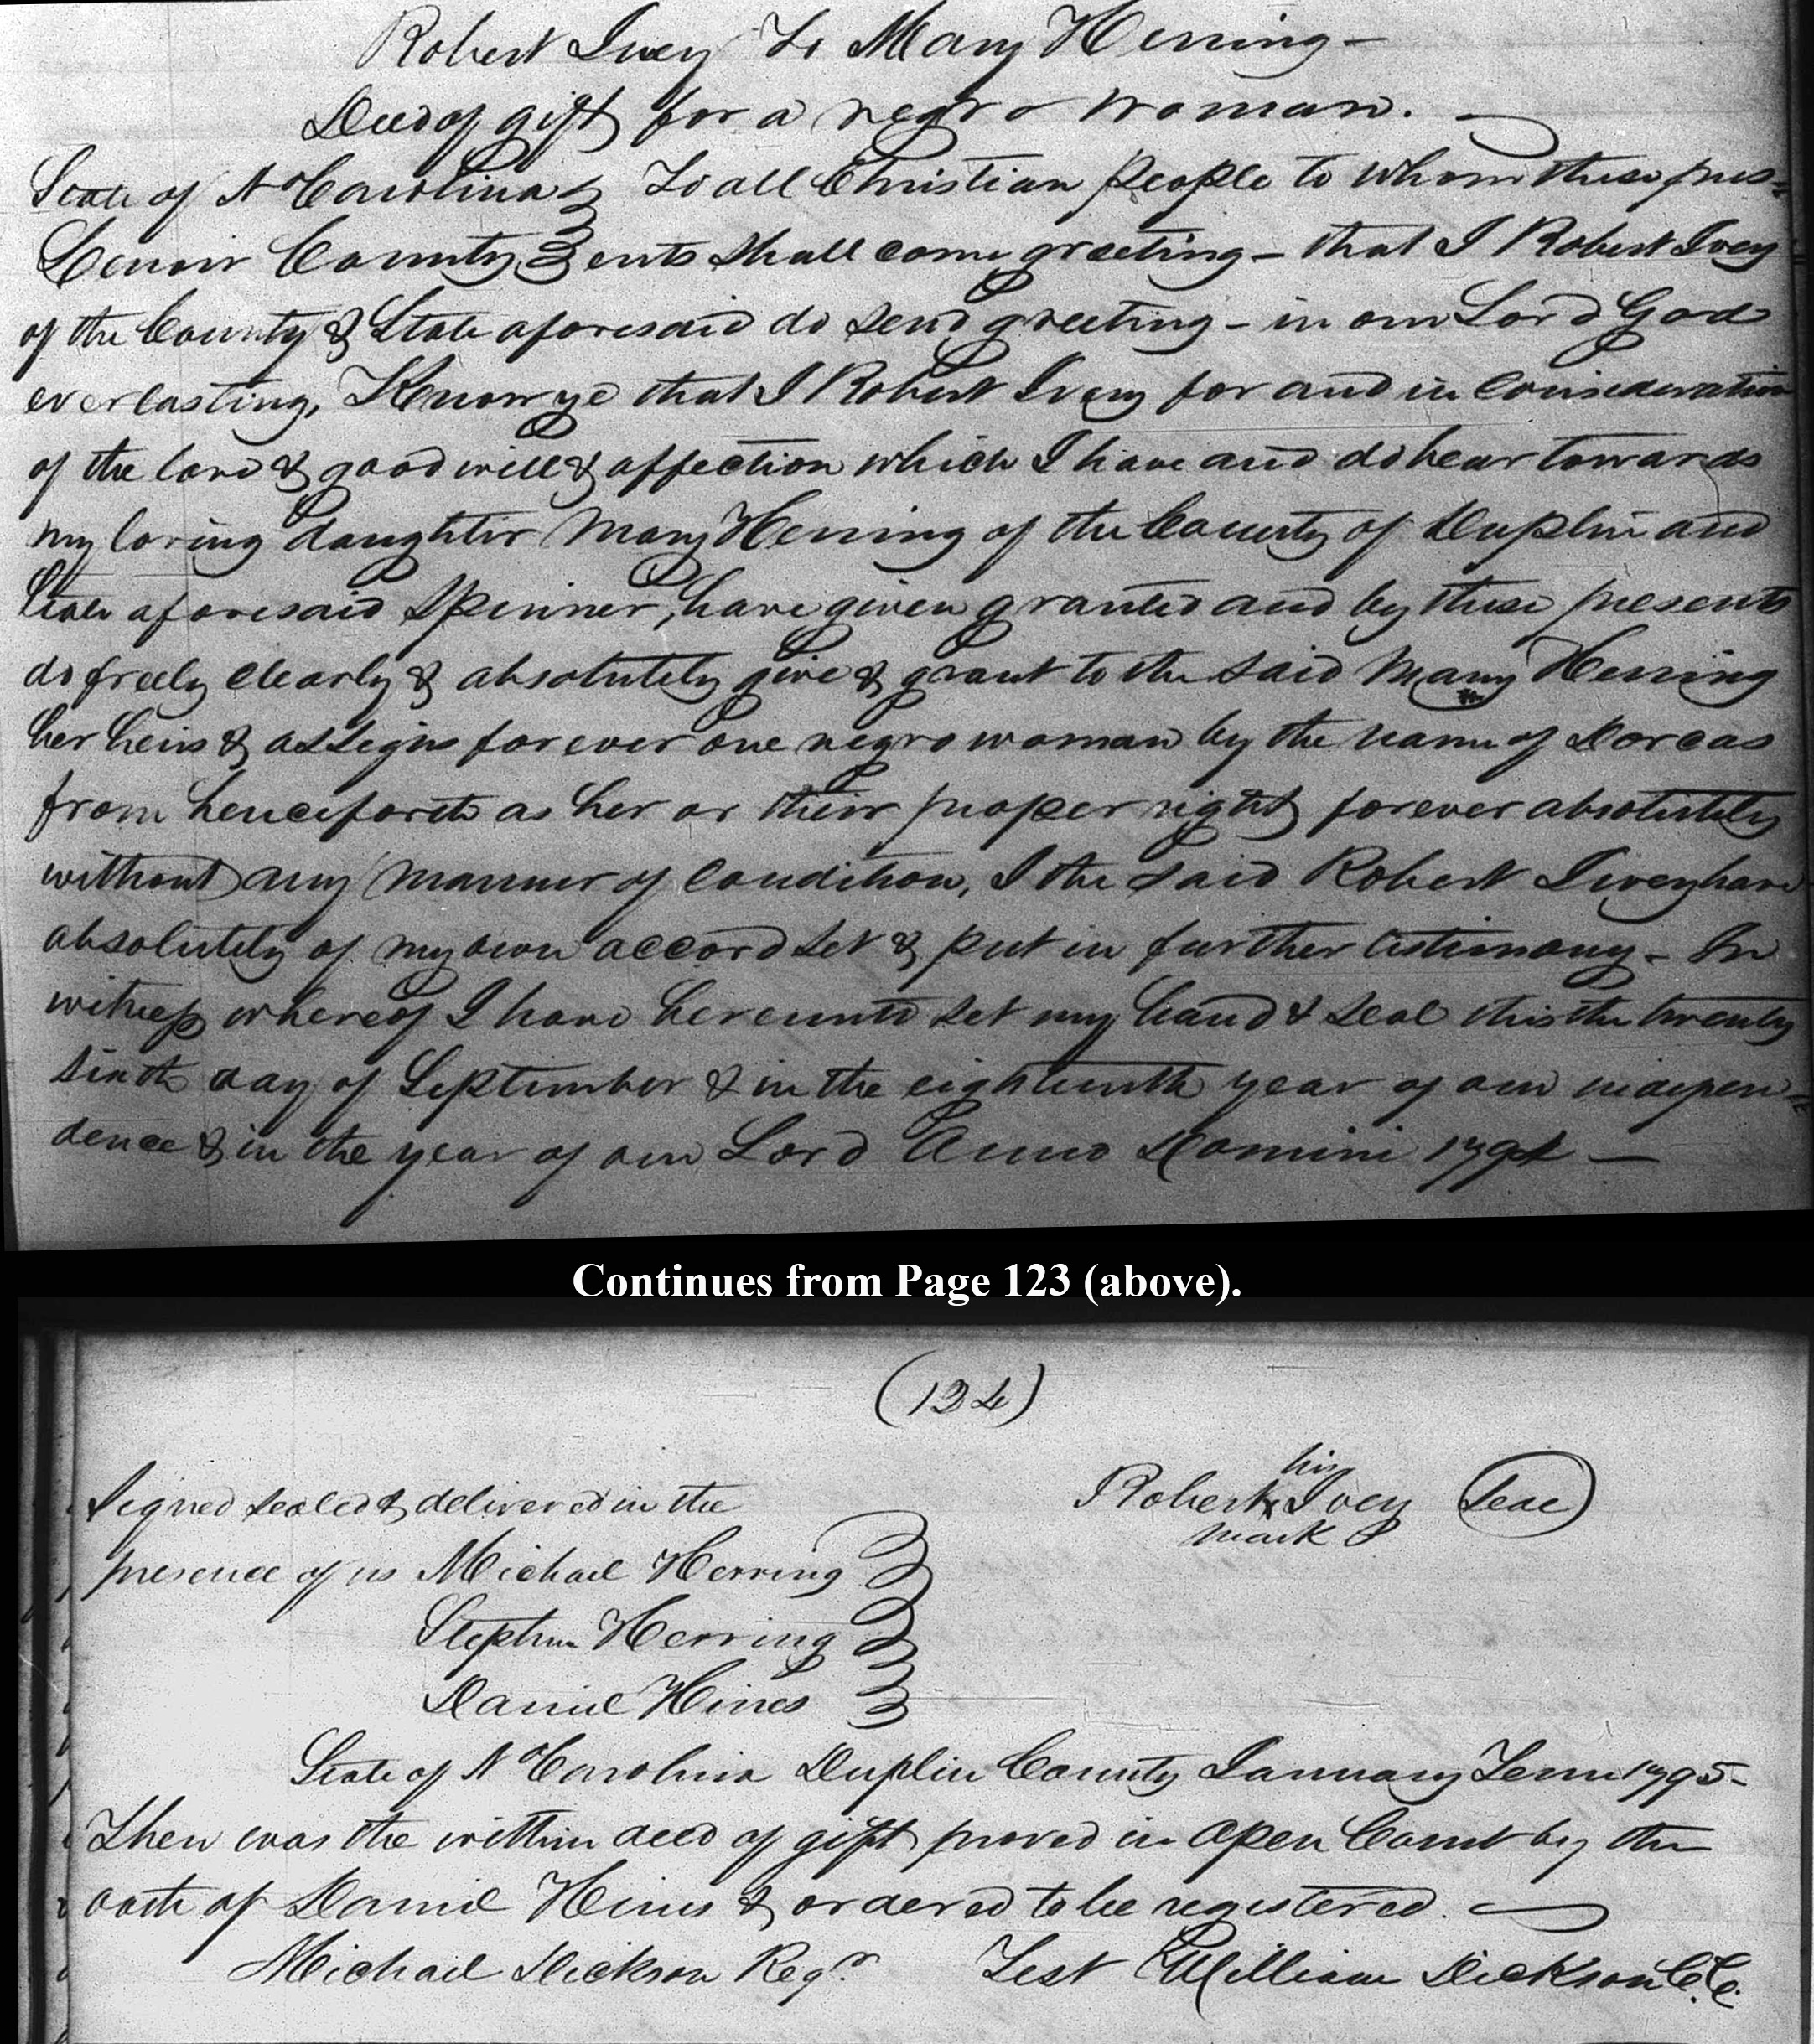 Robert Ivey To Mary Herring –
Deed of gift for a negro woman. –
State of No Carolina } To all Christian people to whom these pres=
Lenoir County } ents shall come greeting – that I Robert Ivey
of the County & State aforesaid do send greeting – in our Lord God
everlasting, Know ye that I Robert Ivey for and in consideration
of the love & good will & affection which I have and do bear towards
my loving daughter Mary Herring of the County of Duplin and
State aforesaid Spinner, have given granted and by these presents
do freely clearly & absolutely give & grant to the said Mary Herring
her heirs & assigns forever one negro woman by the name of Dorcas
from henceforth as her or their proper right forever absolutely
without any manner of condition, I the said Robert Ivey have
absolutely of my own accord set & put in further testimony – In
witness whereof I have hereunto set my hand & seal this the twenty
sixth day of September & in the eighteenth year of our indepen=
dence & in the year of our Lord Anno Domini 1794 —
Continues from Page 123 (above).
(124)
his
Signed sealed & delivered in the Robert x Ivey (Seal)
mark
presence of us Michael Herring }
Stephen Herring }
Daniel Hines }
State of No Carolina Duplin County January Term 1795 –
Then was the within deed of gift proved in Open Court by the
oath of Daniel Hines & ordered to be registered. —
Michael Dickson Regr. Test William Dickson C.C.